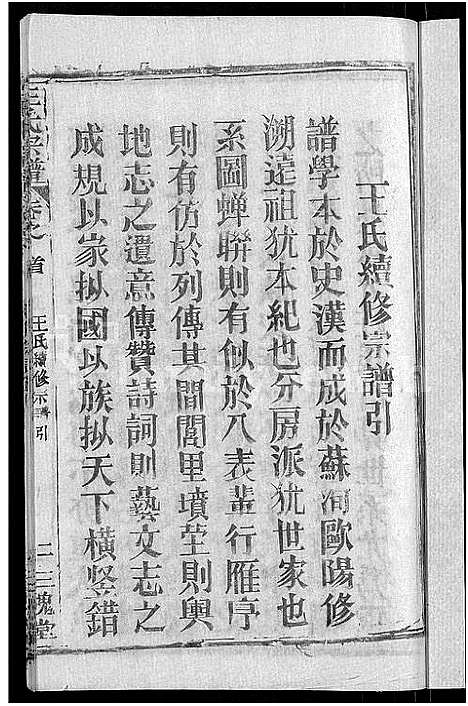 王氏續修宗譜引
譜學本於史漢而成於蘇洵歐陽修
溯遠祖犹本紀也分房派犹世家也
系圖蝉聨則有似於八表輩行雁序
則有仿於列傳其間閭里墳塋則輿
地志之遺意傳贊詩詞則藝文志之
成規以家拟國以族拟天下橫竪錯
王氏宗譜 卷之首 王氏續修宗譜引 二 三槐堂